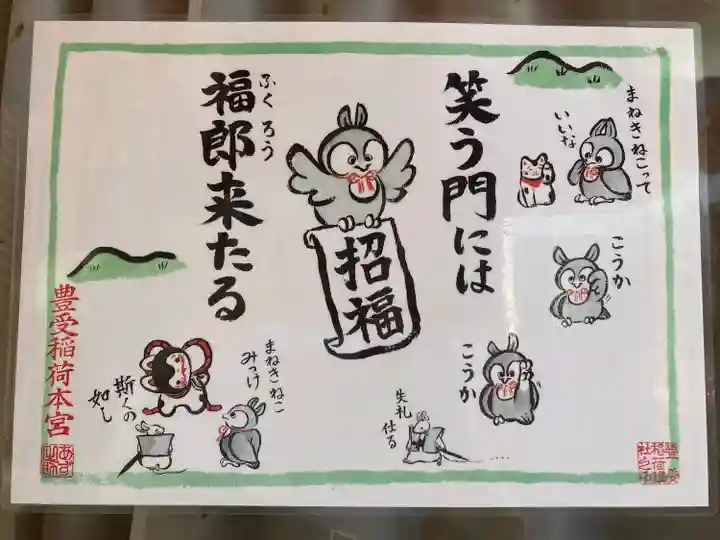 笑う門には
ふくろう
福郎来たる
招福
まねきねこって
いいな
こうか
こうか
失礼
仕る
まねきねこ
みっけ
斯くの
如し
豊受稲荷本宮